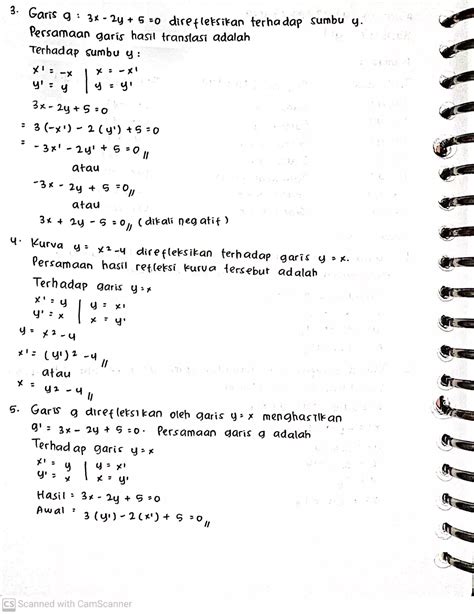 3. Garis g : 3x - 2y + 5 = 0 direfleksikan terhadap sumbu y.
Persamaan garis hasil translasi adalah
Terhadap sumbu y :
x' = -x | x = -x'
y' = y | y = y'
3x - 2y + 5 = 0
= 3(-x') - 2(y') + 5 = 0
= -3x' - 2y' + 5 = 0 //
atau
-3x - 2y + 5 = 0 //
atau
3x + 2y - 5 = 0 // (dikali negatif)
4. Kurva y = x² - 4 direfleksikan terhadap garis y = x.
Persamaan hasil refleksi kurva tersebut adalah
Terhadap garis y = x
x' = y | y = x'
y' = x | x = y'
y = x² - 4
x' = (y')² - 4 //
atau
x = y² - 4 //
5. Garis g direfleksikan oleh garis y = x menghasilkan
g' = 3x - 2y + 5 = 0. Persamaan garis g adalah
Terhadap garis y = x
x' = y | y = x'
y' = x | x = y'
Hasil = 3x - 2y + 5 = 0
Awal = 3(y') - 2(x') + 5 = 0 //
CS Scanned with CamScanner